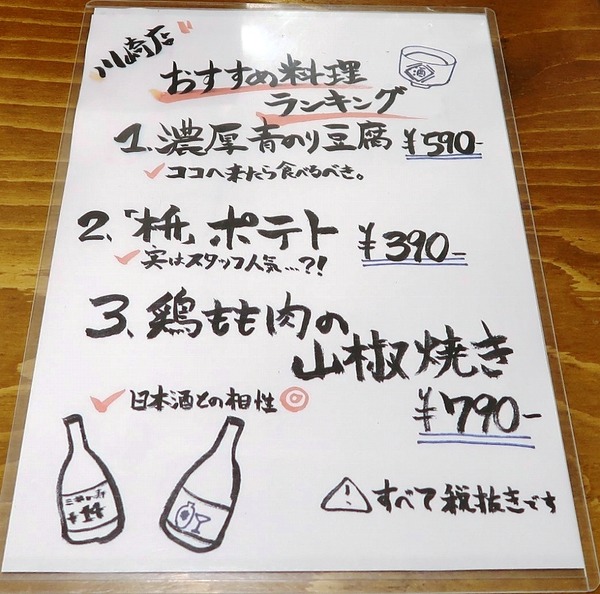 川崎店
おすすめ料理
ランキング
酒
1.濃厚青のり豆腐 ¥590-
✓ココへ来たら食べるべき。
2.「枡」ポテト ¥390-
✓実はスタッフ人気…?!
3.鶏もも肉の
山椒焼き
✓日本酒との相性◎
¥790-
⚠すべて税抜きです